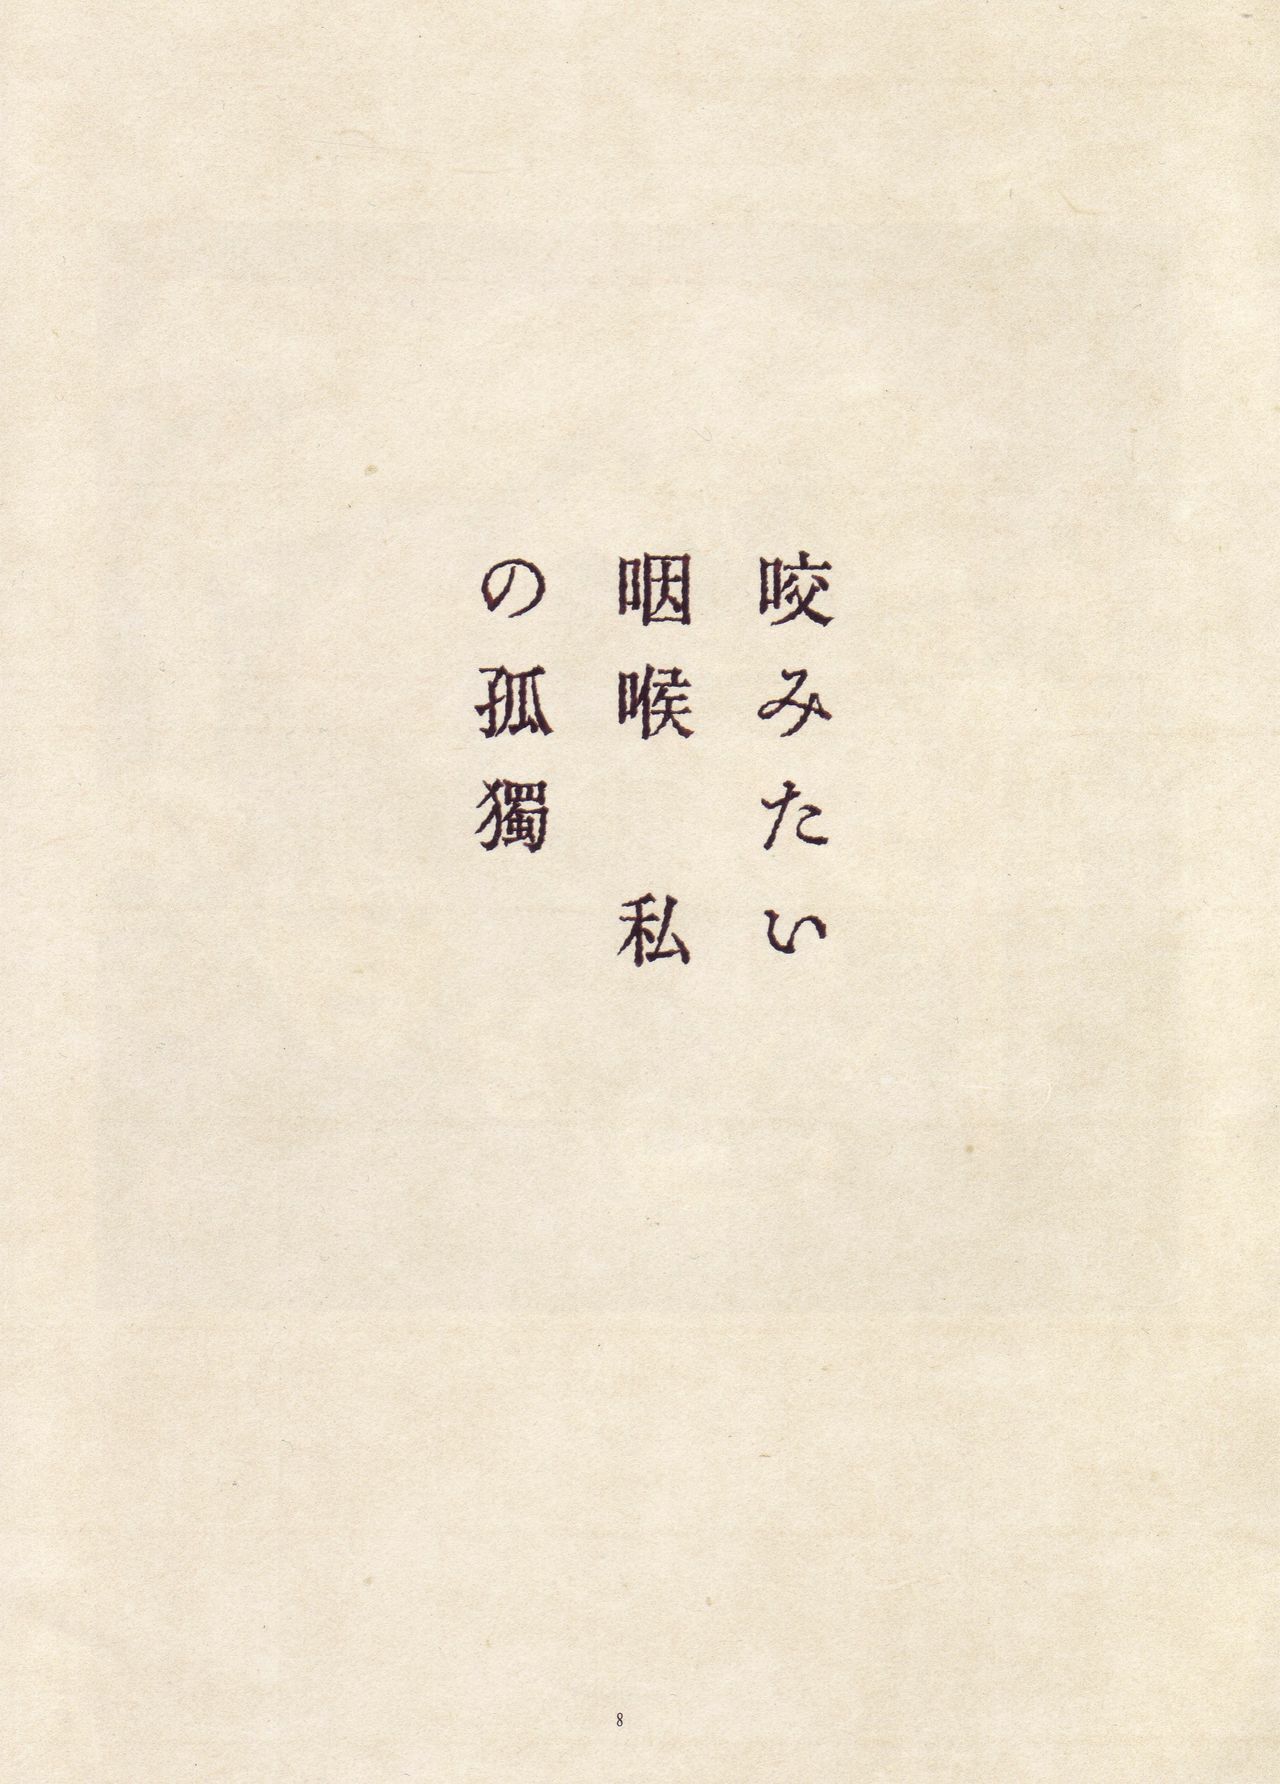 咬みたい
咽喉　私
の孤獨
8